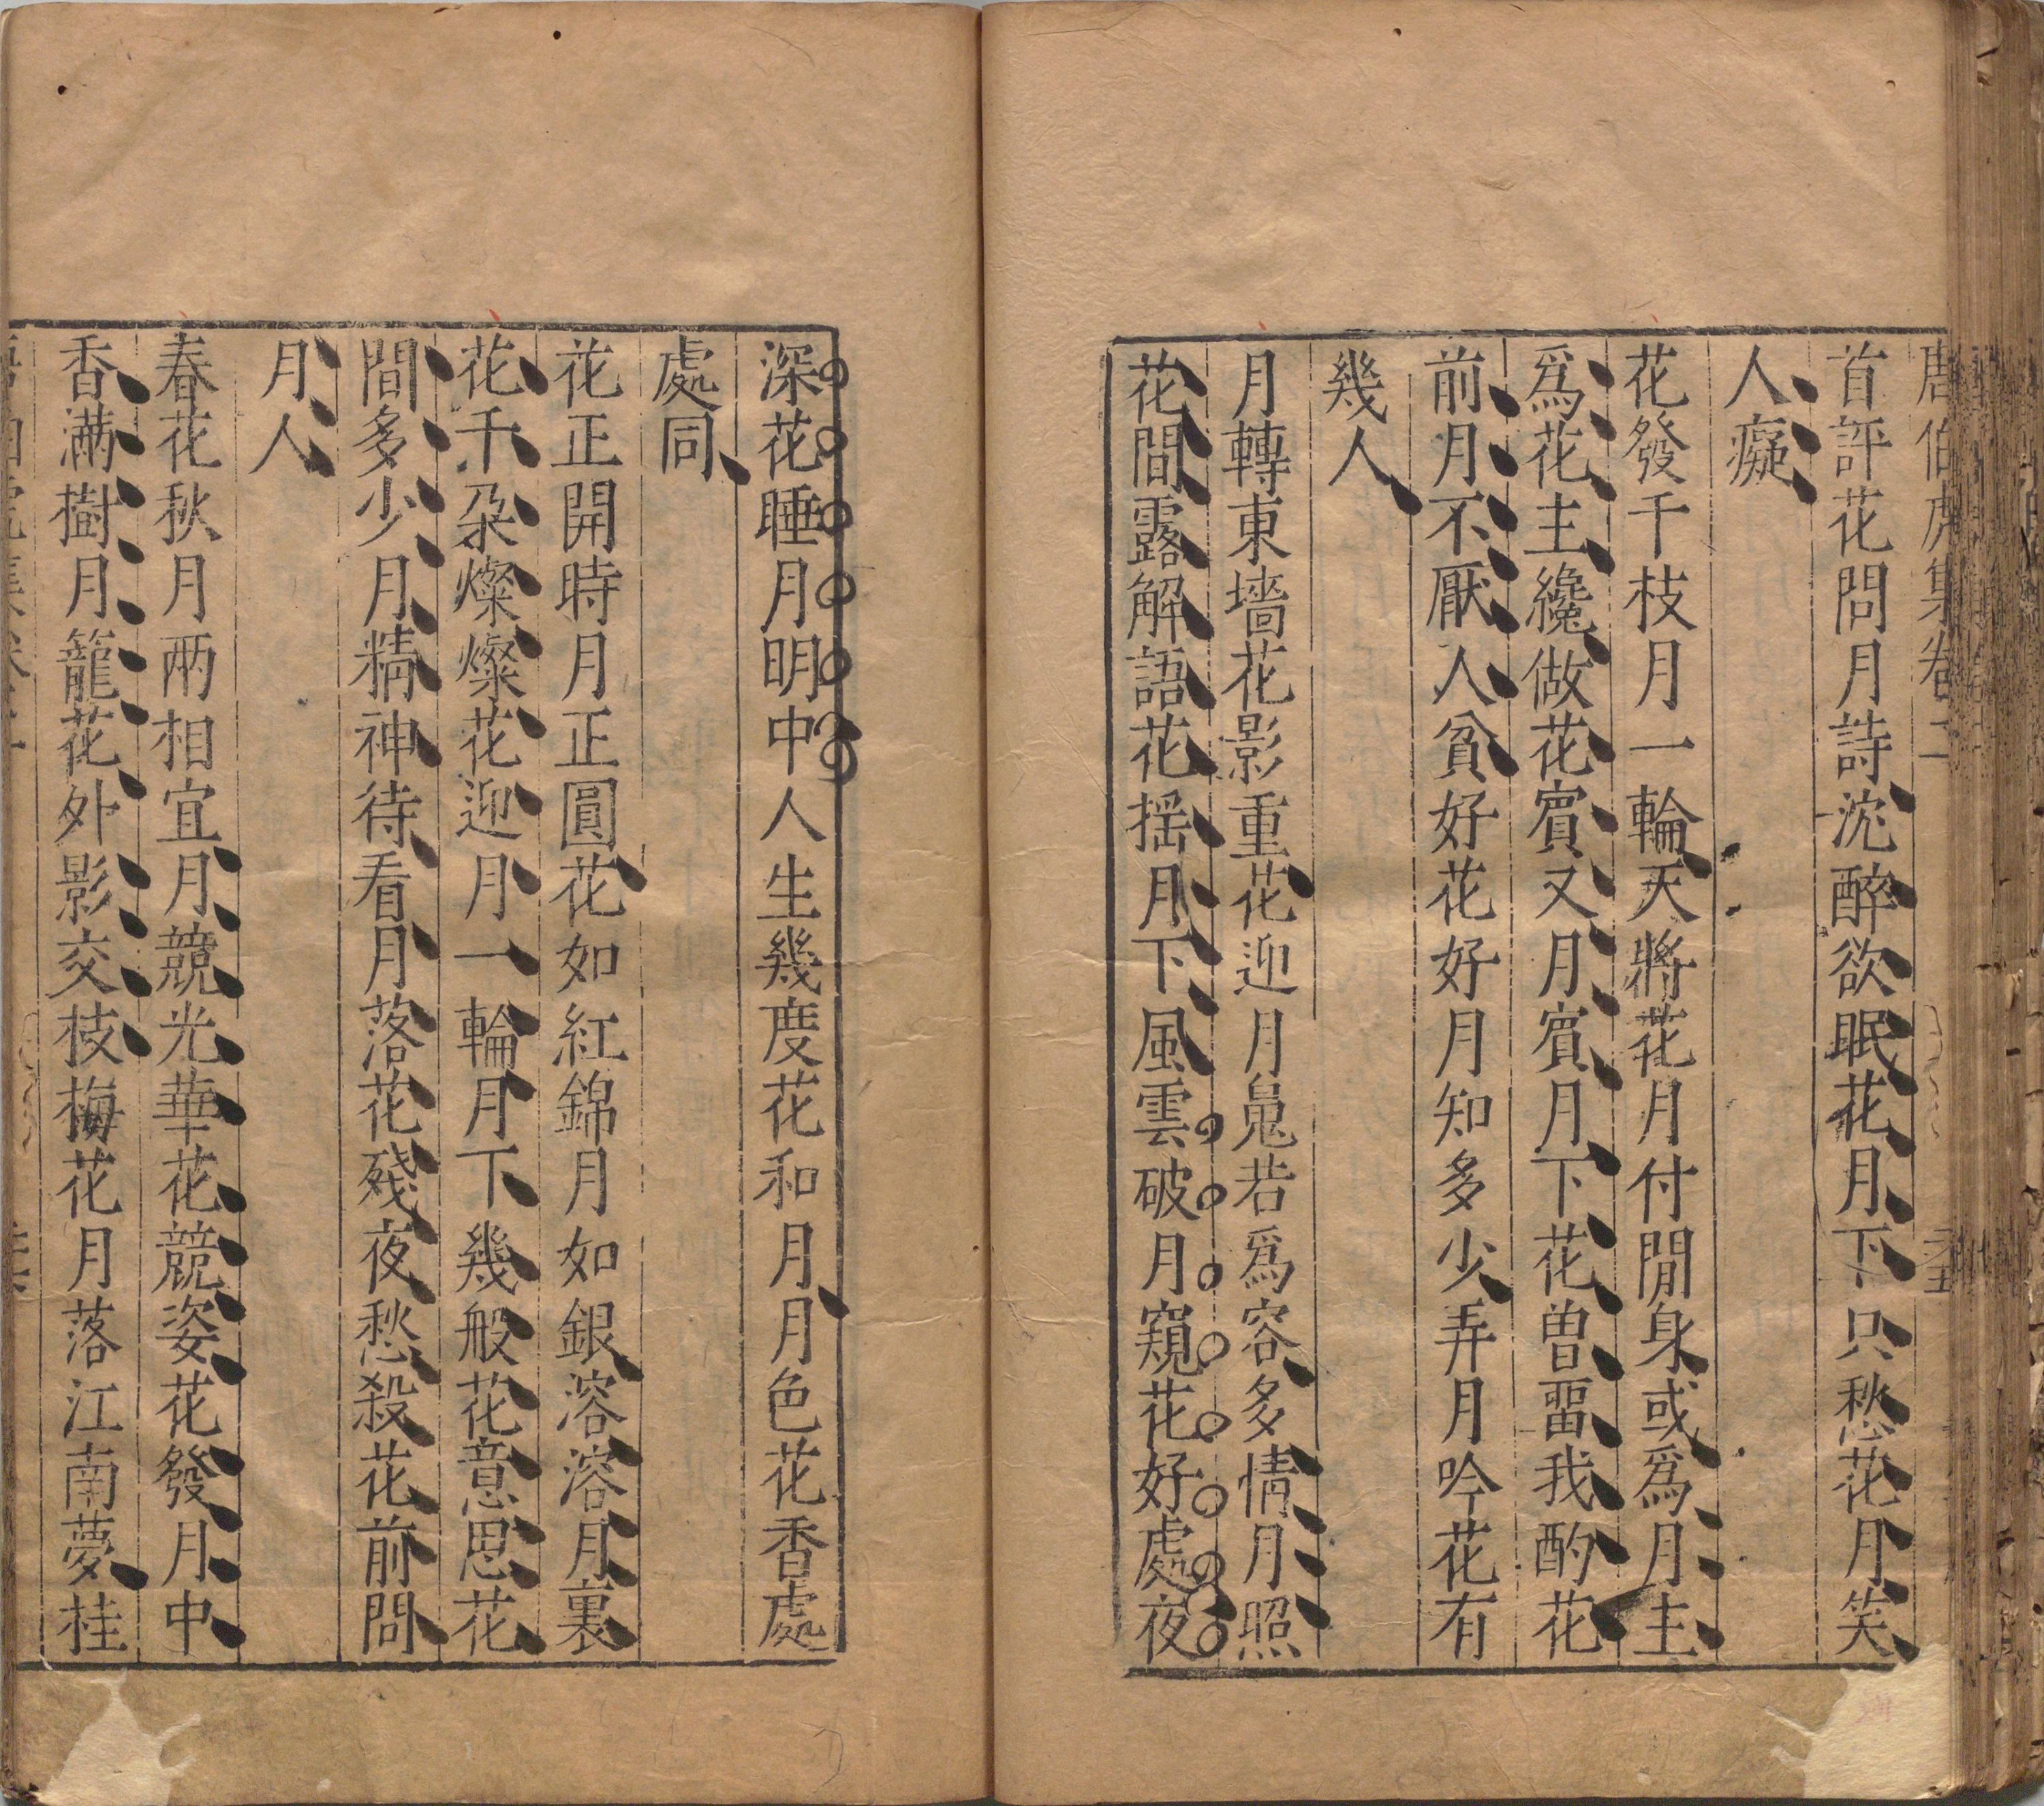 唐伯虎集卷二
首評花問月詩沈醉欲眠花月下只愁花月笑
人癡
花發千枝月一輪天將花月付閒身或爲月主
爲花主纔做花賓又月賓月下花曽畱我酌花
前月不厭人貧好花好月知多少弄月吟花有
幾人
月轉東墻花影重花迎月鬼若爲容多情月照
花間露解語花揺月下風雲破月窺花好處夜
深花睡月明中人生幾度花和月月色花香處
處同
花正開時月正圓花如紅錦月如銀溶溶月裏
花千朶燦燦花迎月一輪月下幾般花意思花
間多少月精神待看月落花殘夜愁殺花前問
月人
春花秋月兩相宜月競光華花競姿花發月中
香滿樹月籠花外影交枝梅花月落江南夢桂